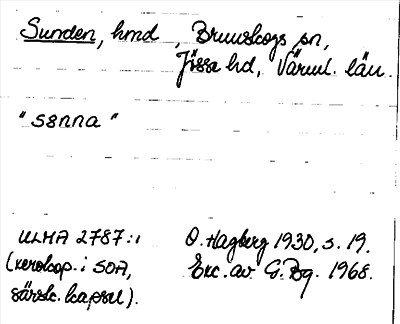 Sunden, hmd , Brunskogs sn,
Jösse hd, Värml. län.
"sɞnna"
ULMA 2787:1 O. Hagberg 1930, s. 19.
(xerokop. i SOA, Exc. av G. Bg. 1968.
särsk. kapsel).